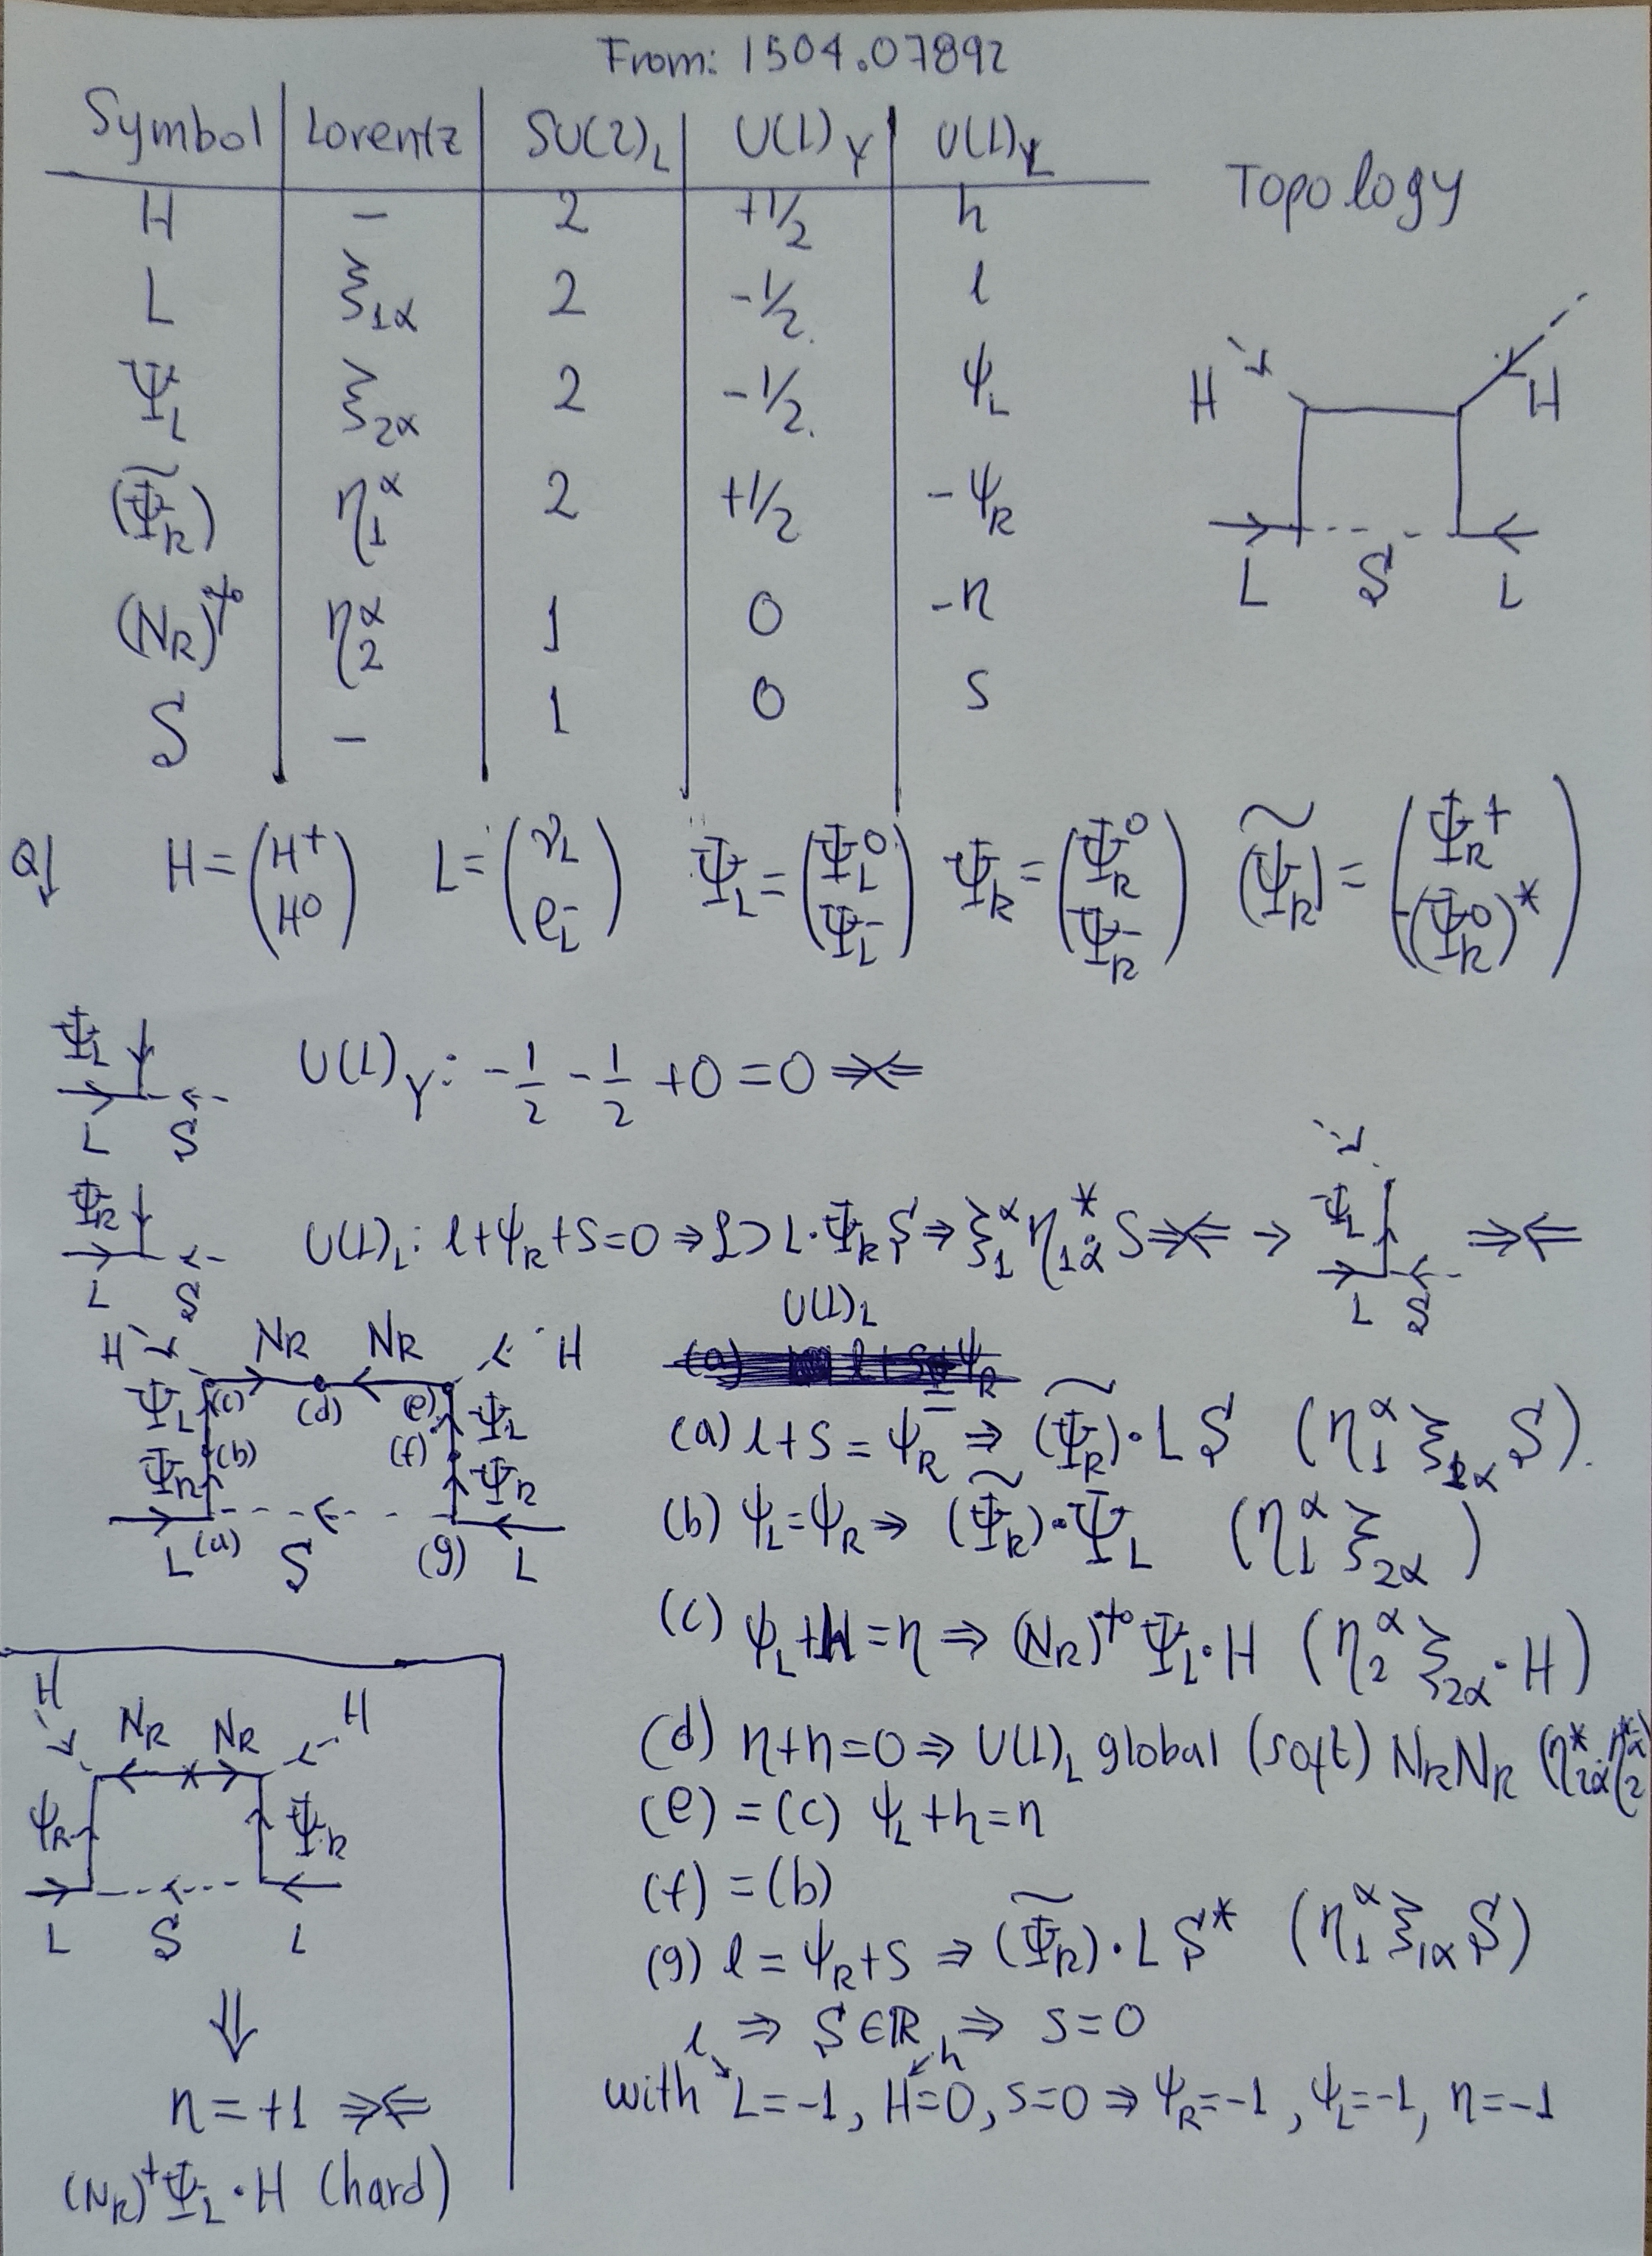 From: 1504.07892
Symbol | Lorentz | SU(2)_L | U(1)_Y | U(1)_L
H | – | 2 | +1/2 | h
L | ξ_{1α} | 2 | -1/2 | l
Ψ_L | ξ_{2α} | 2 | -1/2. | ψ_L
(Ψ̃_R) | η_1^α | 2 | +1/2 | -ψ_R
(N_R)^† | η_2^α | 1 | 0 | -η
S | – | 1 | 0 | s
Topology
H H
L S L
Q↓ H = (H^+ H^0) L = (ν_L e_L^-) Ψ_L = (Ψ_L^0 Ψ_L^-) Ψ_R = (Ψ_R^0 Ψ_R^-) (Ψ̃_R) = (Ψ_R^+ -(Ψ_R^0)^*)
Ψ_L L S U(1)_Y: -1/2 -1/2 +0 = 0 ⇒⇐
Ψ_R L S U(1)_L: l+ψ_R+s=0 ⇒ ℒ⊃ L·Ψ_R S ⇒ ξ_1^α η^*_{1α̇} S ⇒⇐ → Ψ_L L S ⇒⇐
U(1)_L
H N_R N_R H
Ψ_L (c) (d) (e) Ψ_L
Ψ_R (b) (f) Ψ_R
L (a) S (g) L
(a) l+s = ψ_R ⇒ (Ψ̃_R)·L S (η_1^α ξ_{1α} S).
(b) ψ_L=ψ_R ⇒ (Ψ̃_R)·Ψ_L (η_1^α ξ_{2α})
(c) ψ_L+h=η ⇒ (N_R)^† Ψ_L·H (η_2^α ξ_{2α}·H)
(d) η+η=0 ⇒ U(1)_L global (soft) N_R N_R (η^*_{2α̇} η_2^{*α̇})
(e) = (c) ψ_L+h=η
(f) = (b)
(g) l = ψ_R+s ⇒ (Ψ̃_R)·L S* (η_1^α ξ_{1α} S)
⇒ S∈ℝ ⇒ s=0
l h
with L=-1, H=0, s=0 ⇒ ψ_R=-1, ψ_L=-1, η=-1
H N_R N_R H
Ψ_R Ψ_R
L S L
⇓
η = +1 ⇒⇐
(N_R)^† Ψ_L·H (hard)